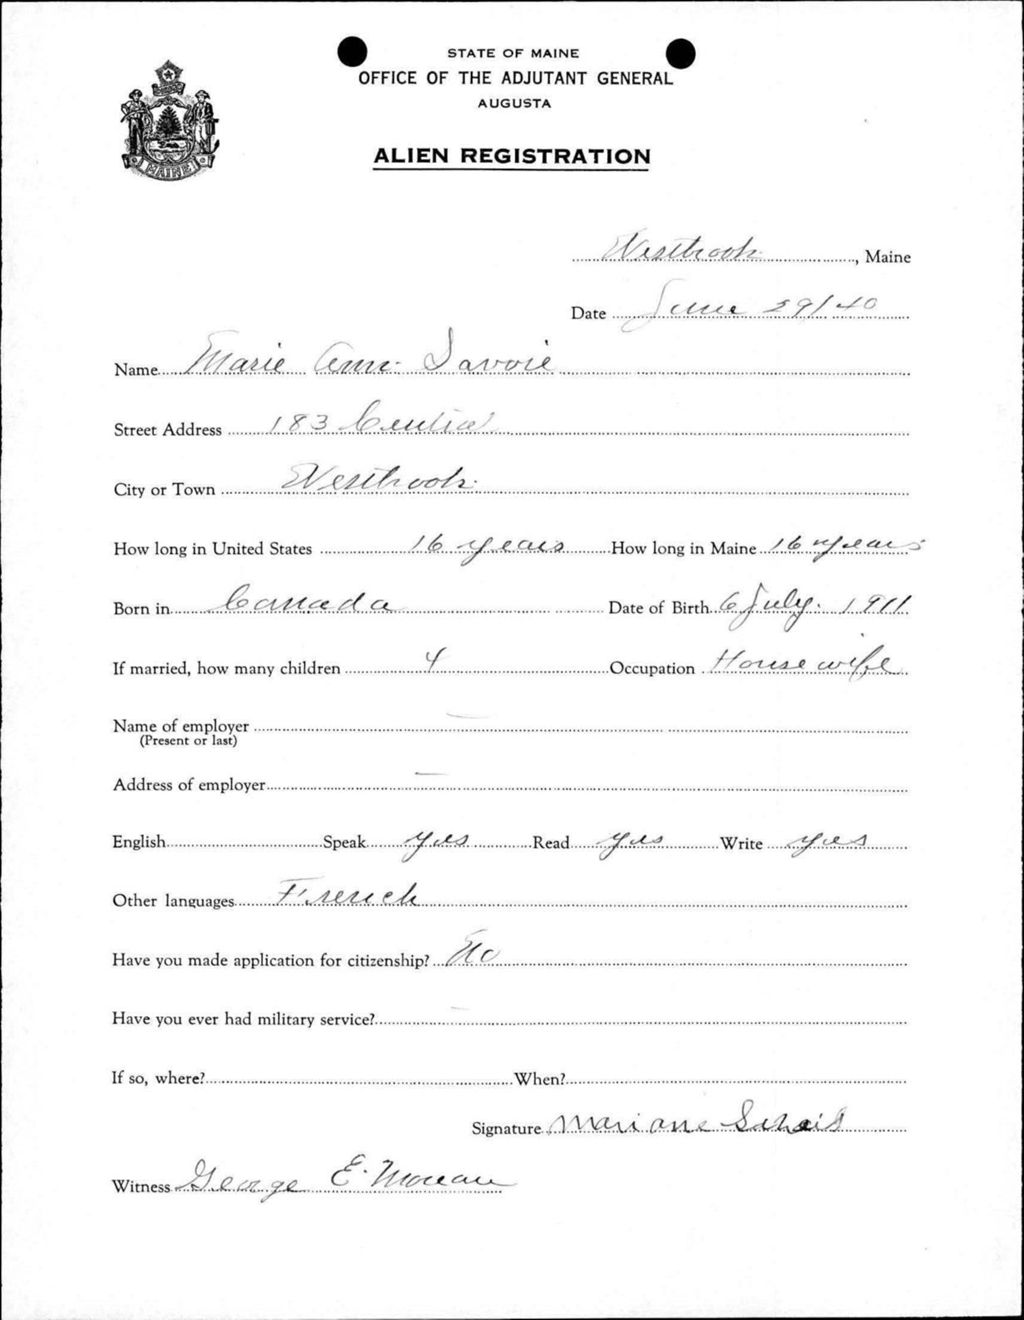 STATE OF MAINE
OFFICE OF THE ADJUTANT GENERAL
AUGUSTA
ALIEN REGISTRATION
MAINE
Westbrook, Maine
Date June 29/40
Name Marie Ann Savoie
Street Address 183 Central
City or Town Westbrook
How long in United States 16 years How long in Maine 16 years
Born in Canada Date of Birth 6 July. 1911
If married, how many children 4 Occupation Housewife
Name of employer —
(Present or last)
Address of employer —
English Speak yes Read yes Write yes
Other languages French
Have you made application for citizenship? No
Have you ever had military service? —
If so, where? When?
Signature Mariane
Witness George E. Moreau